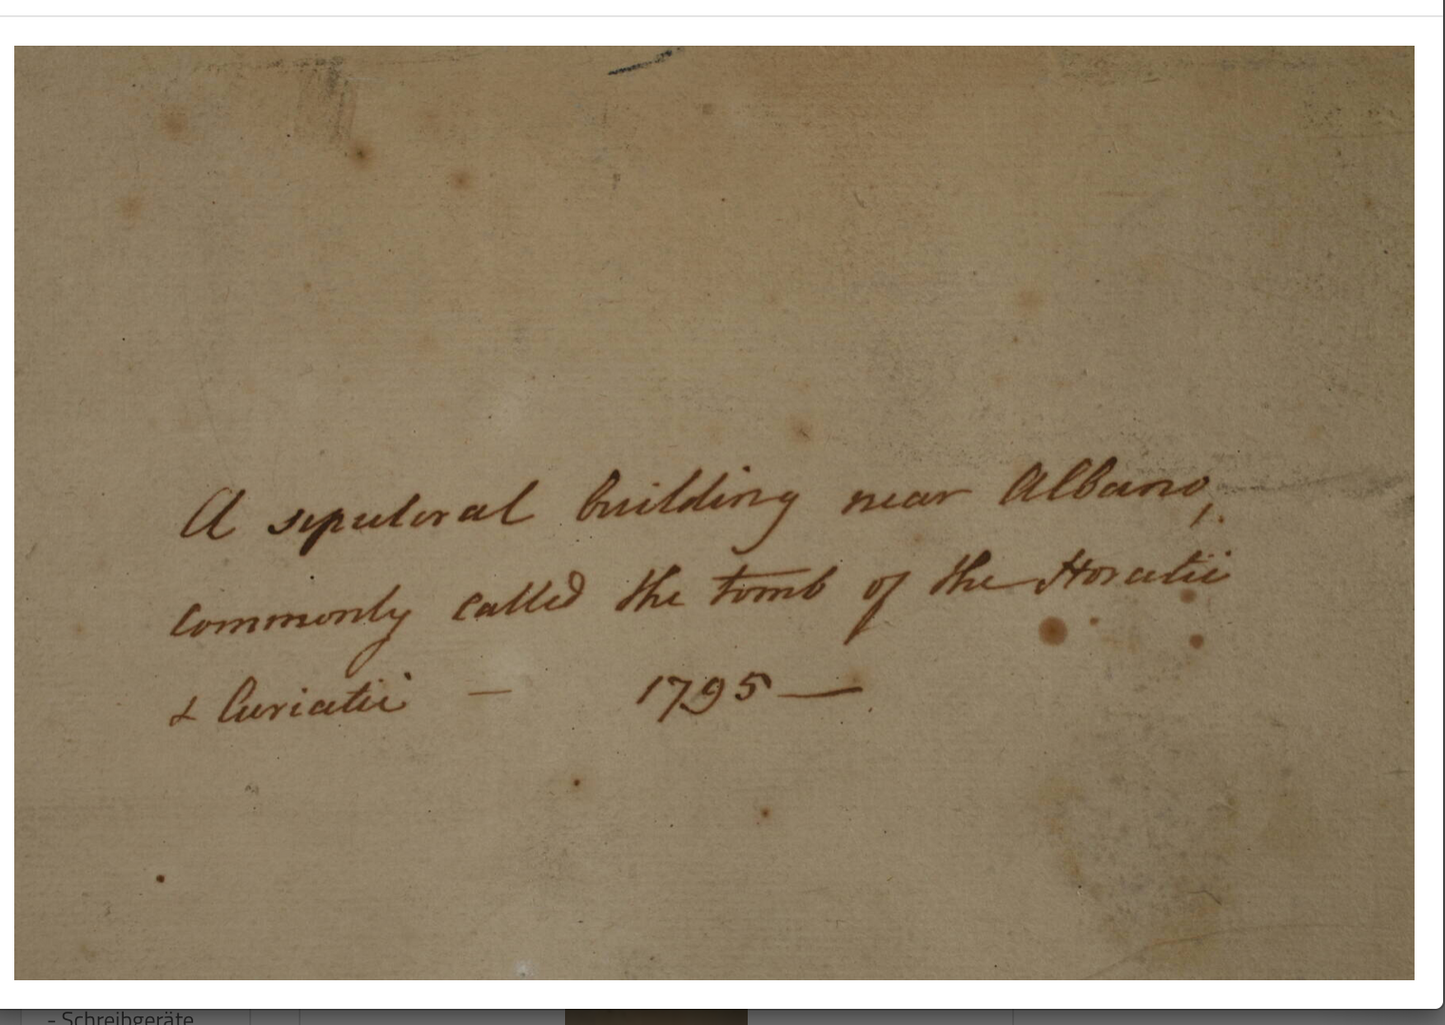 A sepulcral building near Albano,
commonly called the tomb of the Horatii
& Curiatii — 1795 —
- Schreibgeräte